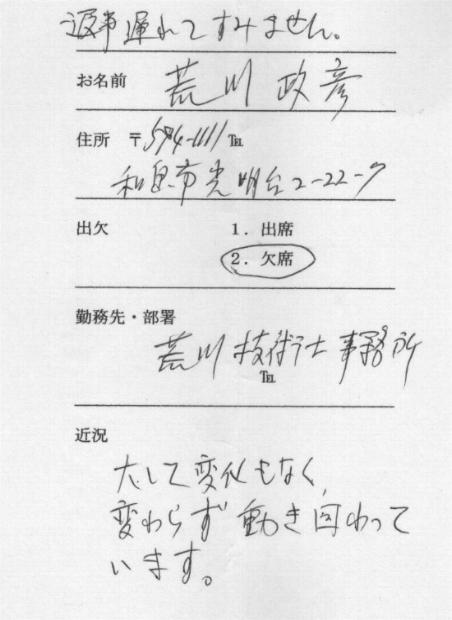 返事遅れてすみません。
お名前 荒川 政彦
住所 〒594-1111 ℡
和泉市光明台2-22-7
出欠 1. 出席
2. 欠席
勤務先・部署
荒川技術士事務所
℡
近況
大して変化もなく、
変わらず動き回わって
います。